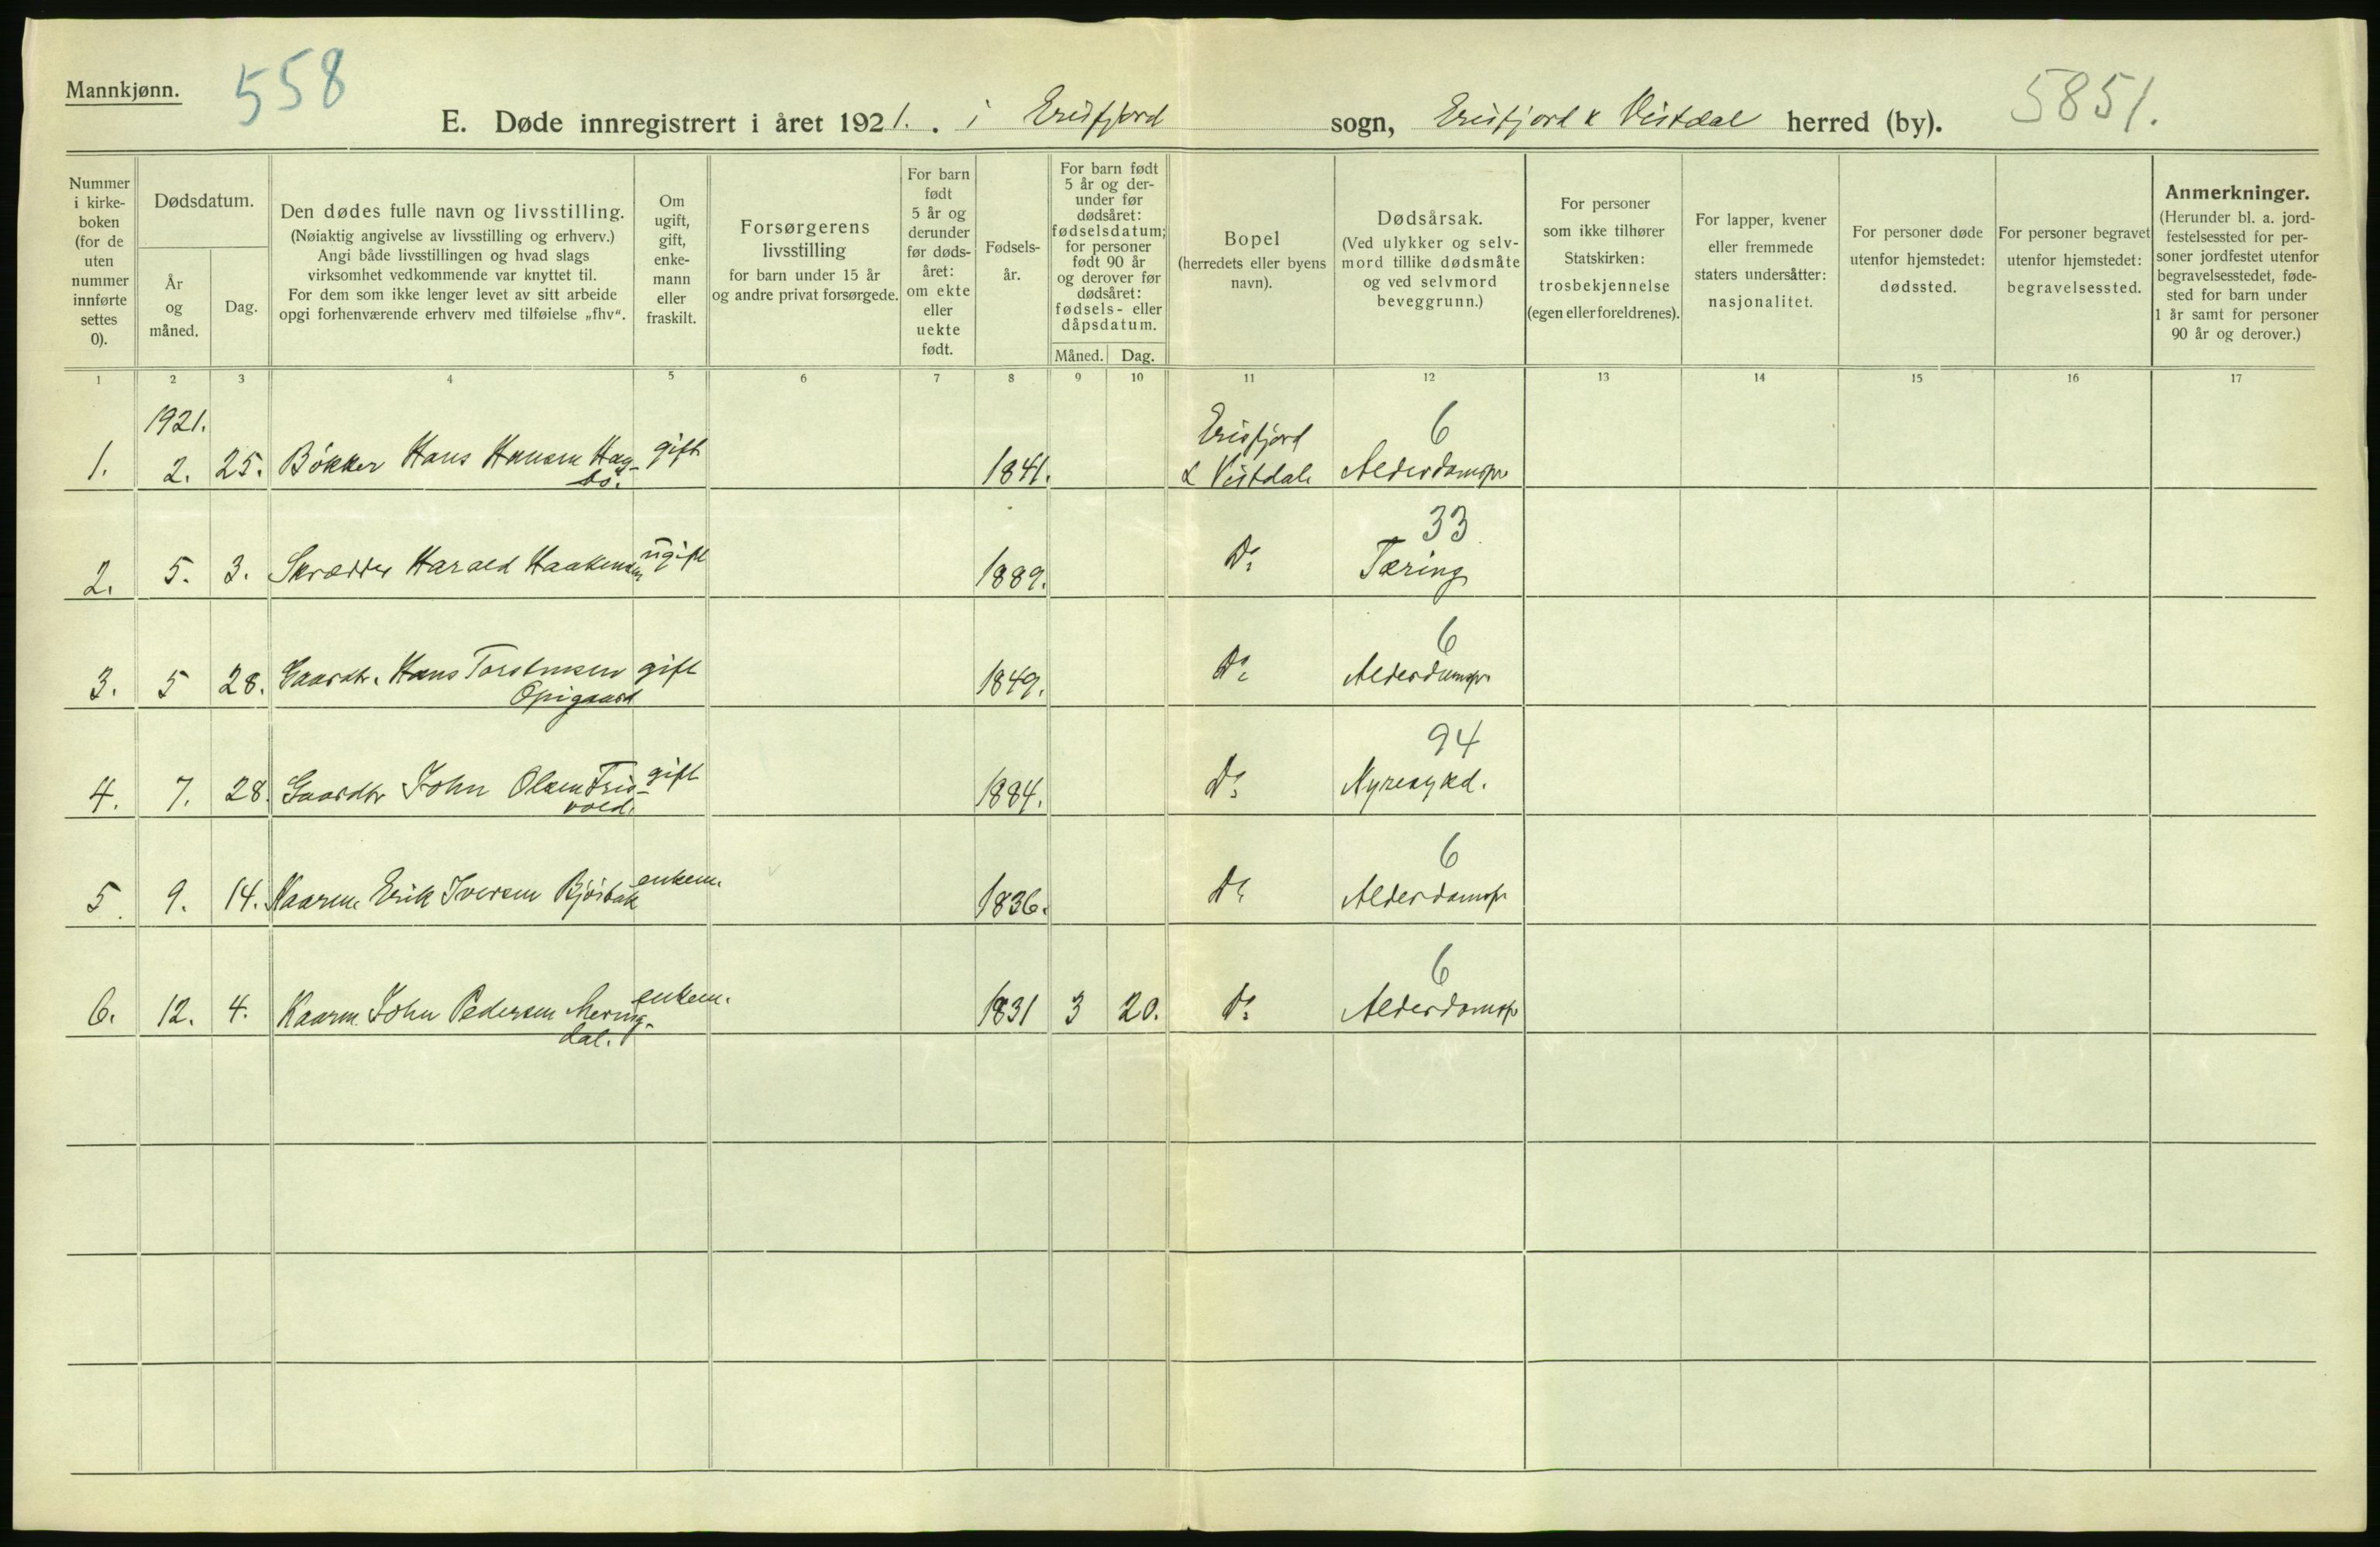 Mannkjønn.
558
E. Døde innregistrert i året 1921. i Erisfjord sogn, Erisfjord & Vistdal herred (by).
5851.
Nummer i kirke-boken (for de uten nummer innførte settes 0).
Dødsdatum.
År og måned.
Dag.
Den dødes fulle navn og livsstilling.
(Nøiaktig angivelse av livsstilling og erhverv.)
Angi både livsstillingen og hvad slags
virksomhet vedkommende var knyttet til.
For dem som ikke lenger levet av sitt arbeide
opgi forhenværende erhverv med tilføielse „fhv“.
Om ugift, gift, enke-mann eller fraskilt.
Forsørgerens livsstilling
for barn under 15 år
og andre privat forsørgede.
For barn født 5 år og derunder før døds-året: om ekte eller uekte født.
Fødsels-år.
For barn født 5 år og der-under før dødsåret: fødselsdatum; for personer født 90 år og derover før dødsåret: fødsels- eller dåpsdatum.
Måned. Dag.
Bopel
(herredets eller byens navn).
Dødsårsak.
(Ved ulykker og selv-mord tillike dødsmåte og ved selvmord beveggrunn.)
For personer som ikke tilhører Statskirken: trosbekjennelse (egen eller foreldrenes).
For lapper, kvener eller fremmede staters undersåtter: nasjonalitet.
For personer døde utenfor hjemstedet: dødssted.
For personer begravet utenfor hjemstedet: begravelsessted.
Anmerkninger.
(Herunder bl. a. jord-festelsessted for per-soner jordfestet utenfor begravelsesstedet, føde-sted for barn under 1 år samt for personer 90 år og derover.)
1 2 3 4 5 6 7 8 9 10 11 12 13 14 15 16 17
1921.
1. 2. 25. Bøkker Hans Hansen Hag-bø. gift 1841. Erisfjord & Vistdal 6 Alderdomsp
2. 5. 3. Skrædder Harald Haakensen ugift 1889. Do 33 Tæring
3. 5 28. Gaardbr. Hans Torstensen Opigaard gift 1849. Do 6 Alderdomsp.
4. 7. 28. Gaardbr John Olsen Fris-vold. gift 1884. Do 94 Nyresykd.
5 9. 14. Kaarm. Erik Iversen Bjørbak enkem. 1836. Do 6 Alderdomsp.
6. 12. 4. Kaarm. John Pedersen Mering-dal. enkem. 1831 3 20. Do 6 Alderdomsp